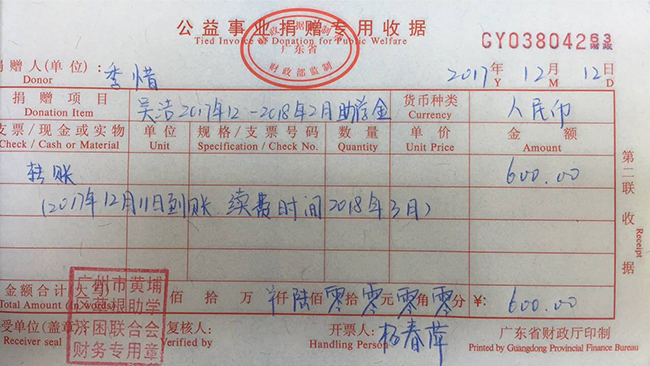 公益事业捐赠专用收据
Tied Invoice of Donation for Public Welfare
广东省
财政部监制
GY03804263
财政
捐赠人(单位): 季惜
Donor
2017年 12月 12日
Y M D
捐赠项目 吴洁2017年12-2018年2月助学金 货币种类 人民币
Donation Item Currency
支票/现金或实物 单位 规格/支票号码 数量 单价 金额
Check / Cash or Material Unit Specification / Check No. Quantity Unit Price Amount
转账 600.00
(2017年12月11日到账 续费时间2018年3月)
第二联 收据
Receipt
金额合计(大写) 佰 拾 万 仟 陆 佰 零 拾 零 元 零 角 零 分 ¥: 600.00
Total Amount (In words)
广州市黄埔
区草根助学
济困联合会
财务专用章
接受单位(盖章): 复核人: 开票人: 杨春萍 广东省财政厅印制
Receiver seal Verified by Handling Person Printed by Guangdong Provincial Finance Bureau